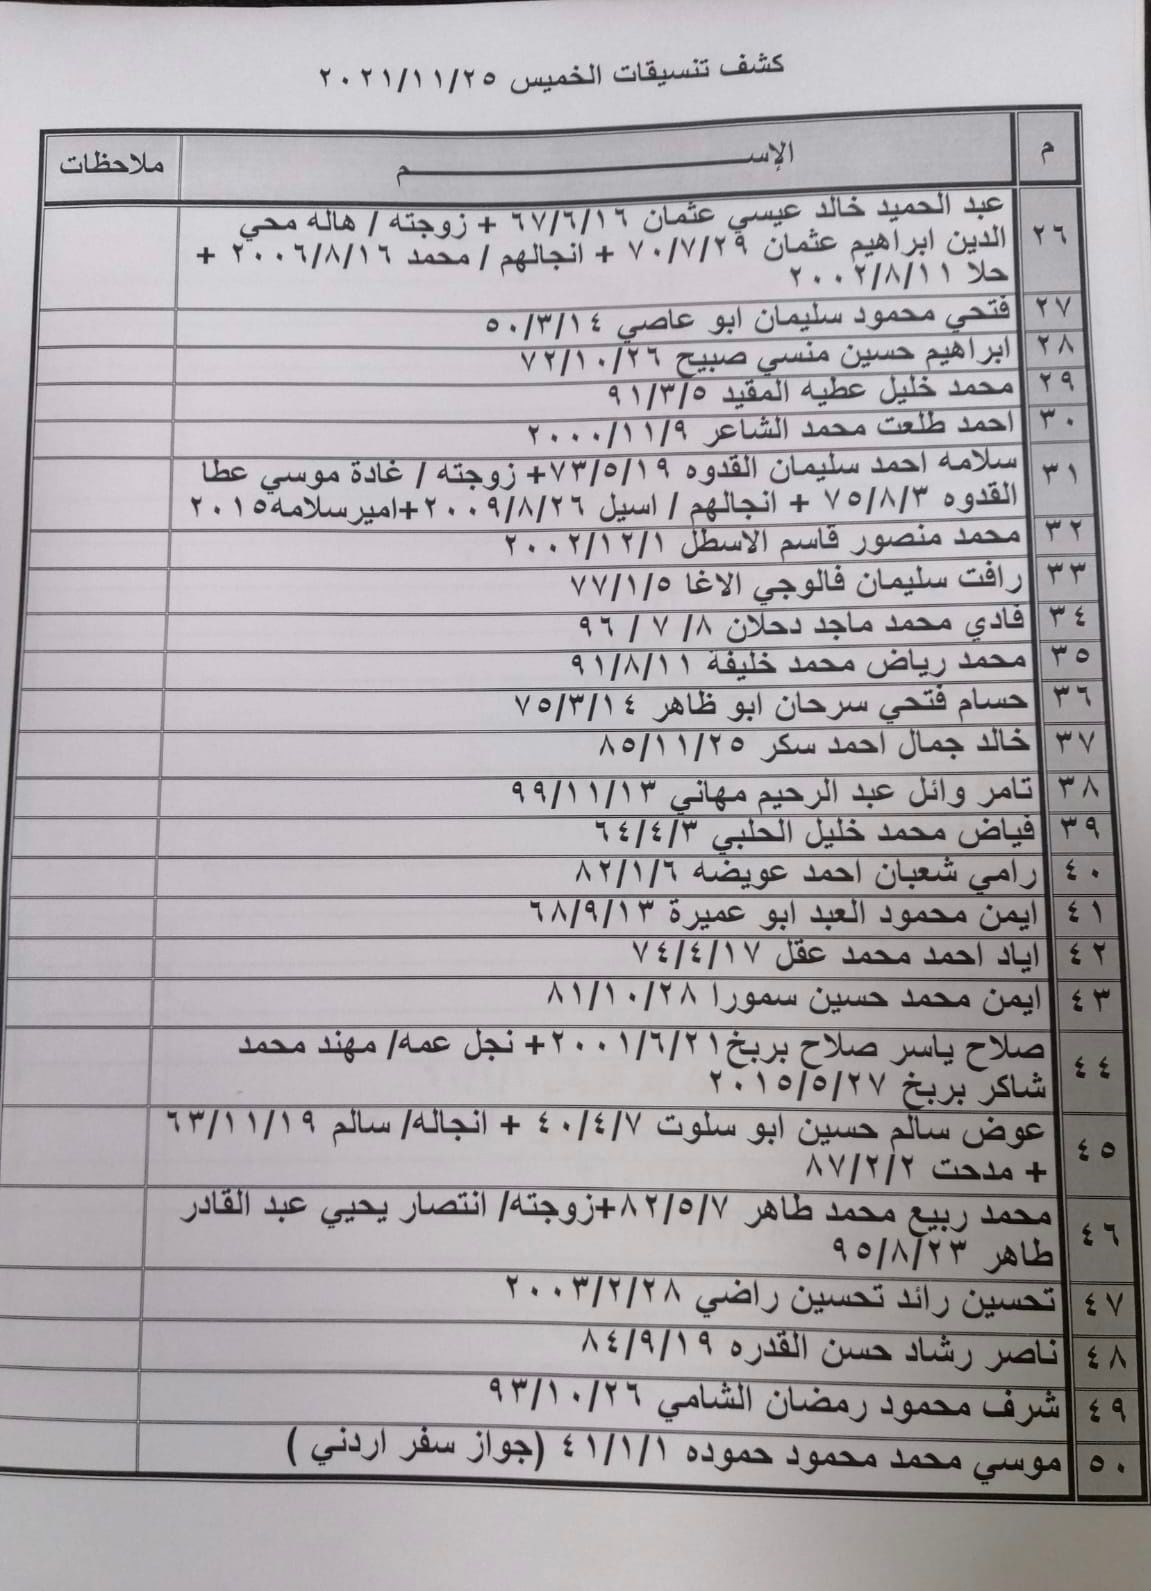 كشف تنسيقات الخميس ٢٠٢١/١١/٢٥
م الإســـــم ملاحظات
٢٦ عبد الحميد خالد عيسي عثمان ٦٧/٦/١٦ + زوجته / هاله محي
الدين ابراهيم عثمان ٧٠/٧/٢٩ + انجالهم / محمد ٢٠٠٦/٨/١٦ +
حلا ٢٠٠٢/٨/١١
٢٧ فتحي محمود سليمان ابو عاصي ٥٠/٣/١٤
٢٨ ابراهيم حسين منسي صبيح ٧٢/١٠/٢٦
٢٩ محمد خليل عطيه المقيد ٩١/٣/٥
٣٠ احمد طلعت محمد الشاعر ٢٠٠٠/١١/٩
٣١ سلامه احمد سليمان القدوه ٧٣/٥/١٩+ زوجته / غادة موسي عطا
القدوه ٧٥/٨/٣ + انجالهم / اسيل ٢٠٠٩/٨/٢٦+اميرسلامه٢٠١٥
٣٢ محمد منصور قاسم الاسطل ٢٠٠٢/١٢/١
٣٣ رافت سليمان فالوجي الاغا ٧٧/١/٥
٣٤ فادي محمد ماجد دحلان ٨/ ٧ / ٩٦
٣٥ محمد رياض محمد خليفة ٩١/٨/١١
٣٦ حسام فتحي سرحان ابو ظاهر ٧٥/٣/١٤
٣٧ خالد جمال احمد سكر ٨٥/١١/٢٥
٣٨ تامر وائل عبد الرحيم مهاني ٩٩/١١/١٣
٣٩ فياض محمد خليل الحلبي ٦٤/٤/٣
٤٠ رامي شعبان احمد عويضه ٨٢/١/٦
٤١ ايمن محمود العبد ابو عميرة ٦٨/٩/١٣
٤٢ اياد احمد محمد عقل ٧٤/٤/١٧
٤٣ ايمن محمد حسين سمورا ٨١/١٠/٢٨
٤٤ صلاح ياسر صلاح بربخ٢٠٠١/٦/٢١+ نجل عمه/ مهند محمد
شاكر بربخ ٢٠١٥/٥/٢٧
٤٥ عوض سالم حسين ابو سلوت ٤٠/٤/٧ + انجاله/ سالم ٦٣/١١/١٩
+ مدحت ٨٧/٢/٢
٤٦ محمد ربيع محمد طاهر ٨٢/٥/٧+زوجته/ انتصار يحيي عبد القادر
طاهر ٩٥/٨/٢٣
٤٧ تحسين رائد تحسين راضي ٢٠٠٣/٢/٢٨
٤٨ ناصر رشاد حسن القدره ٨٤/٩/١٩
٤٩ شرف محمود رمضان الشامي ٩٣/١٠/٢٦
٥٠ موسي محمد محمود حموده ٤١/١/١ (جواز سفر اردني )